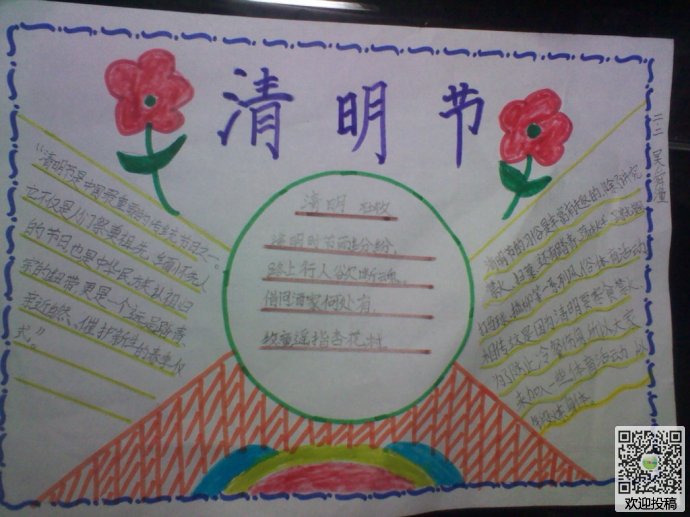 清明节
二.二 吴
"清明节是中国最重要的传统节日之一。
它不仅是人们祭奠祖先、缅怀先人
的节日也是中华民族认祖归
宗的纽带更是一个远足踏青
亲近自然、催护新生的春季仪
式。"
清明 杜牧
清明时节雨纷纷,
路上行人欲断魂。
借问酒家何处有,
牧童遥指杏花村
清明节的习俗是丰富有趣的,除了讲究
禁火、扫墓,还有踏青、荡秋千、
打马球、插柳等一系列风俗体育活动
相传这是因为清明要寒食禁火
为了防止冷餐伤身所以大家
来加入一些体育活动以
锻炼身体。
欢迎投稿